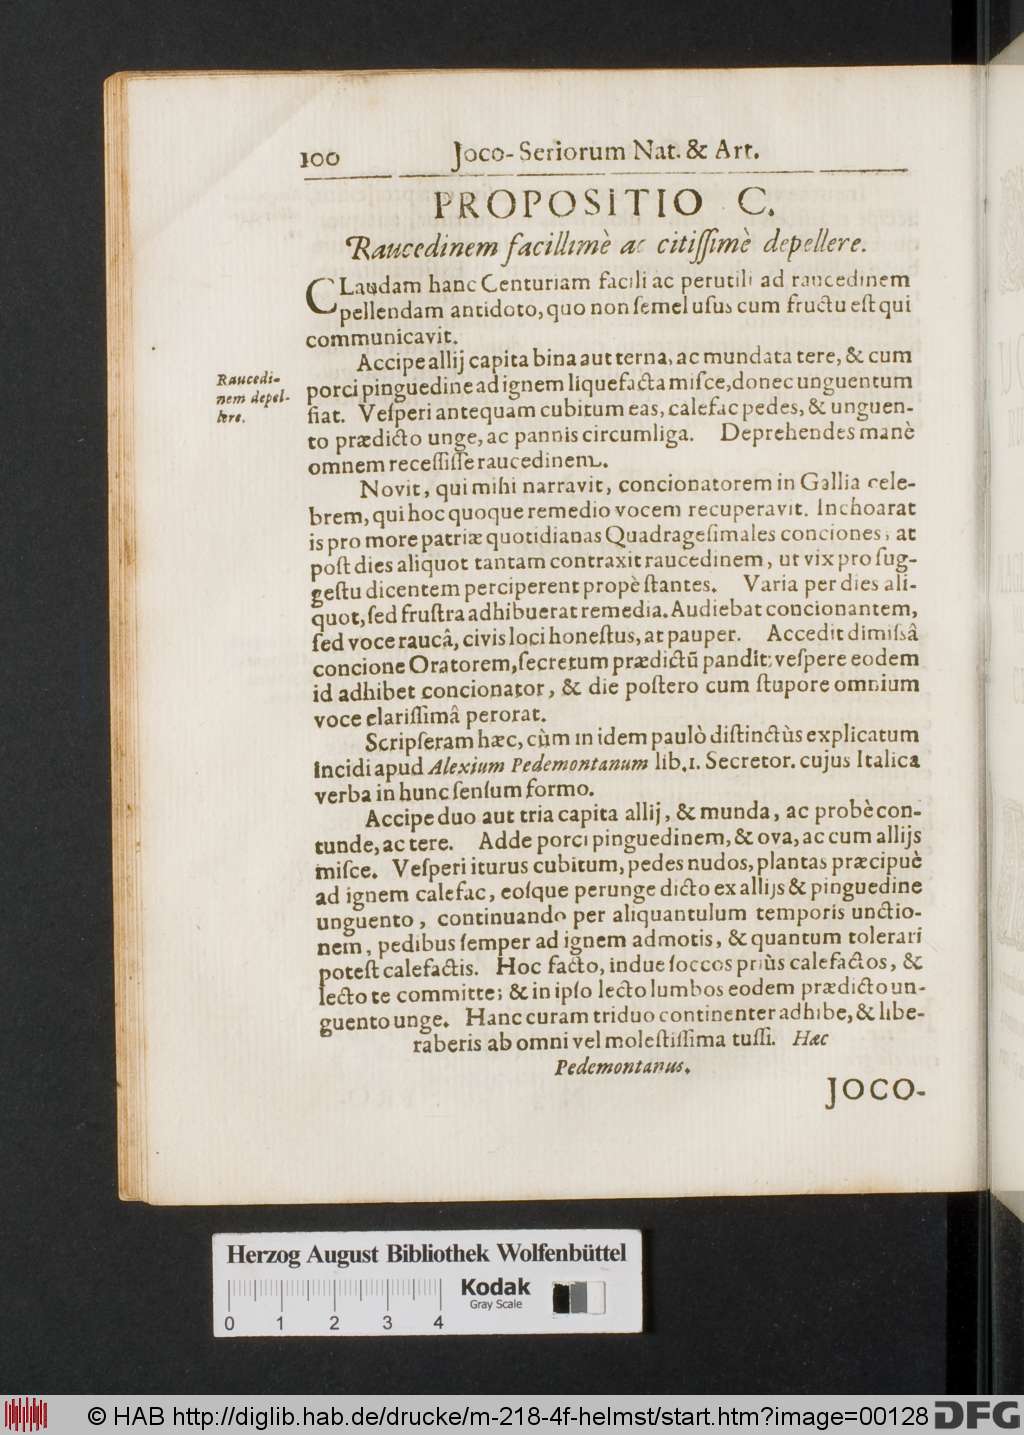 100 Joco-Seriorum Nat. & Art.
PROPOSITIO C.
Raucedinem facillimè ac citiſſimè depellere.
CLaudam hanc Centuriam facili ac perutili ad raucedinem
pellendam antidoto, quo non ſemel uſus cum fructu eſt qui
communicavit.
Raucedi-
nem depel-
lere.
Accipe allij capita bina aut terna, ac mundata tere, & cum
porci pinguedine ad ignem liquefacta miſce, donec unguentum
fiat. Veſperi antequam cubitum eas, calefac pedes, & unguen-
to prædicto unge, ac pannis circumliga. Deprehendes manè
omnem receſſiſſe raucedinem.
Novit, qui mihi narravit, concionatorem in Gallia cele-
brem, qui hoc quoque remedio vocem recuperavit. Inchoarat
is pro more patriæ quotidianas Quadrageſimales conciones; at
poſt dies aliquot tantam contraxit raucedinem, ut vix pro ſug-
geſtu dicentem perciperent propè ſtantes. Varia per dies ali-
quot, ſed fruſtra adhibuerat remedia. Audiebat concionantem,
ſed voce raucâ, civis loci honeſtus, at pauper. Accedit dimiſsâ
concione Oratorem, ſecretum prædictũ pandit; veſpere eodem
id adhibet concionator, & die poſtero cum ſtupore omnium
voce clariſſimâ perorat.
Scripſeram hæc, cùm in idem paulò diſtinctùs explicatum
incidi apud Alexium Pedemontanum lib. 1. Secretor. cujus Italica
verba in hunc ſenſum formo.
Accipe duo aut tria capita allij, & munda, ac probè con-
tunde, ac tere. Adde porci pinguedinem, & ova, ac cum allijs
miſce. Veſperi iturus cubitum, pedes nudos, plantas præcipuè
ad ignem calefac, eoſque perunge dicto ex allijs & pinguedine
unguento, continuando per aliquantulum temporis unctio-
nem, pedibus ſemper ad ignem admotis, & quantum tolerari
poteſt calefactis. Hoc facto, indue ſoccos priùs calefactos, &
lecto te committe; & in ipſo lecto lumbos eodem prædicto un-
guento unge. Hanc curam triduo continenter adhibe, & libe-
raberis ab omni vel moleſtiſſima tuſſi. Hæc
Pedemontanus.
JOCO-
Herzog August Bibliothek Wolfenbüttel
Kodak
Gray Scale
0 1 2 3 4
© HAB http://diglib.hab.de/drucke/m-218-4f-helmst/start.htm?image=00128 DFG